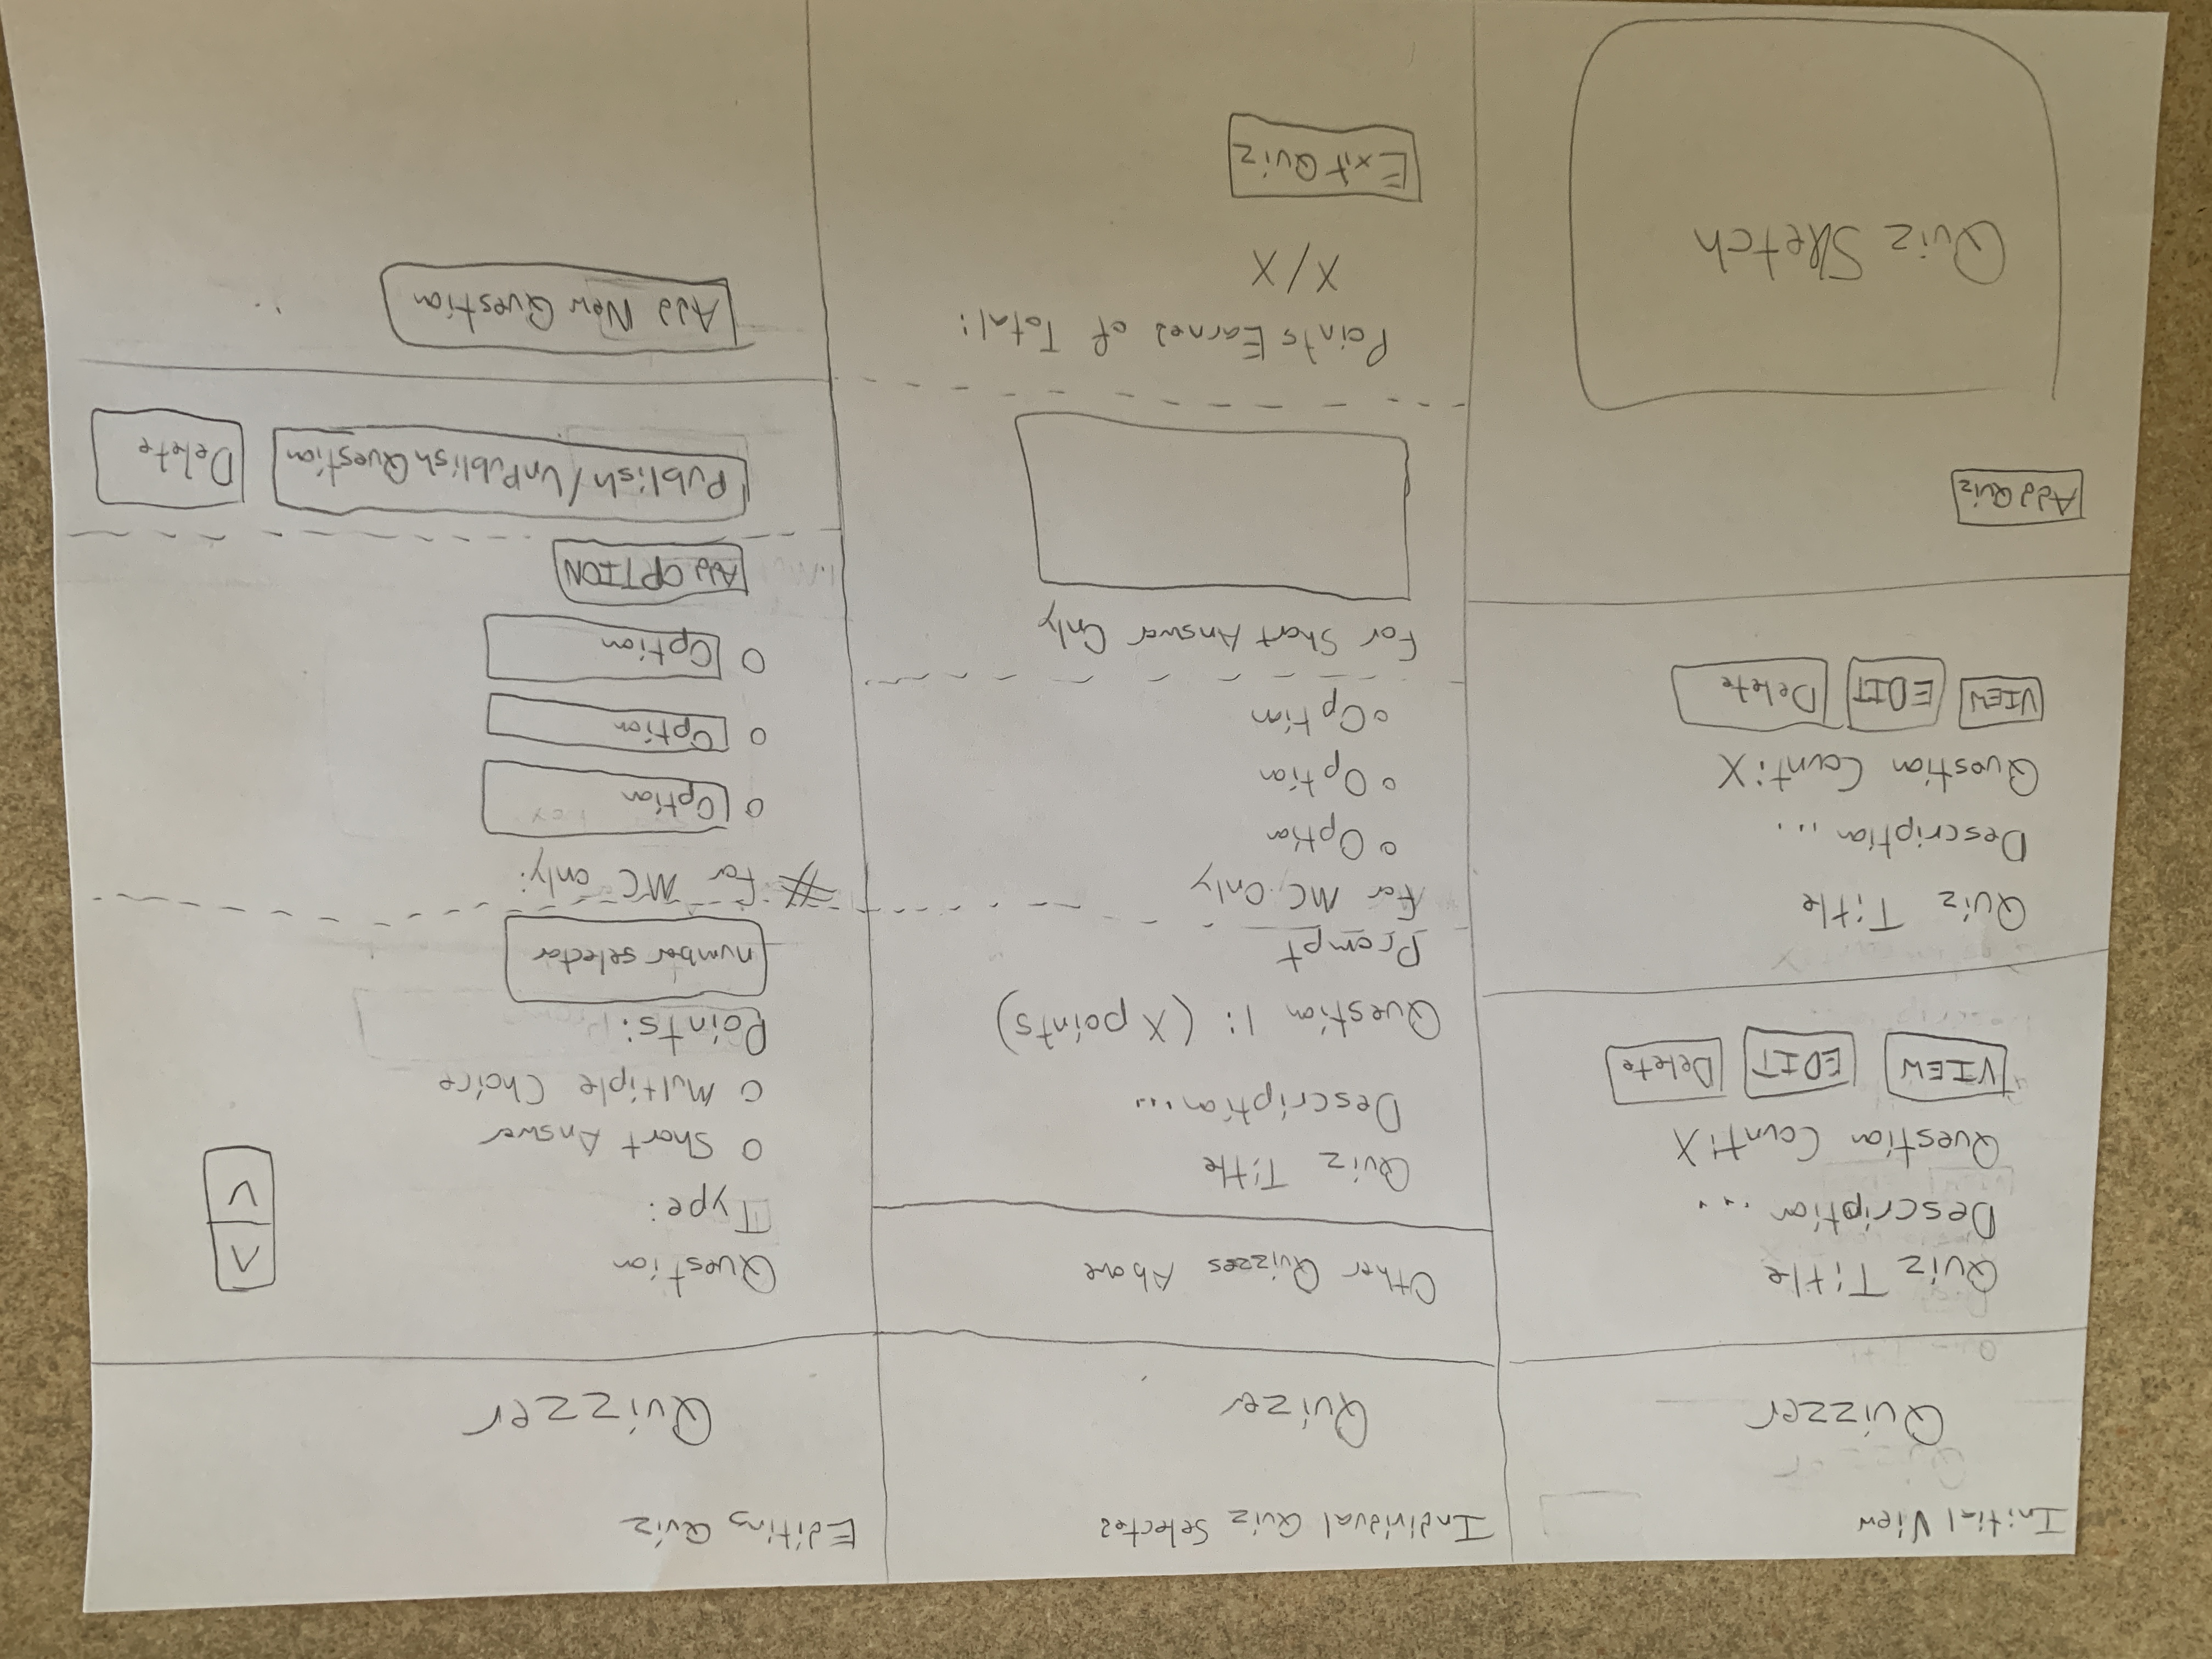 Initial View
Quizzer
Quiz Title
Description...
Question Count: X
VIEW EDIT Delete
Quiz Title
Description...
Question Count: X
VIEW EDIT Delete
Add Quiz
Quiz Sketch
Individual Quiz Selected
Quizer
Other Quizzes Above
Quiz Title
Description...
Question 1: (X points)
Prompt
for MC Only
Option
Option
Option
For Short Answer Only
Points Earned of Total:
X/X
Exit Quiz
Editing Quiz
Quizzer
Question
Type:
Short Answer
Multiple Choice
Points:
number selector
for MC only:
Option
Option
Option
Add OPTION
Publish/UnPublish Question Delete
Add New Question